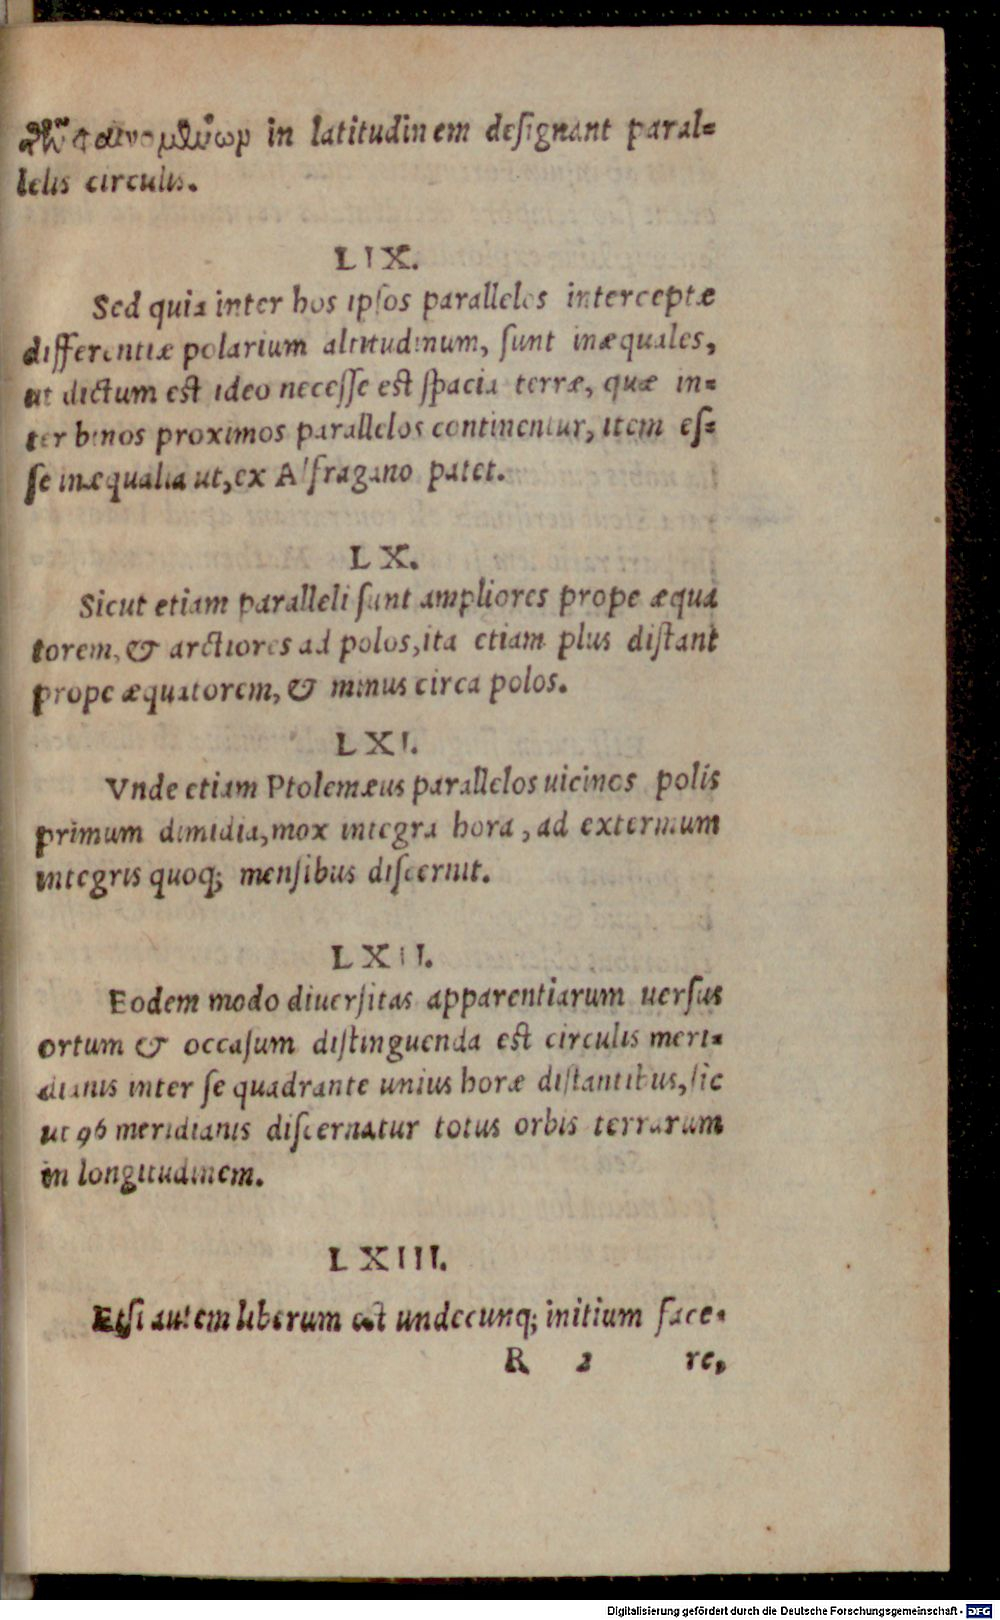 τῶν φαινομένων in latitudinem designant paral=
lelis circulis.
LIX.
Sed quia inter hos ipsos parallelos interceptæ
differentiæ polarium altitudinum, sunt inæquales,
ut dictum est ideo necesse est spacia terræ, quæ in=
ter binos proximos parallelos continentur, item es=
se inæqualia ut, ex Alfragano patet.
LX.
Sicut etiam paralleli sunt ampliores prope æqua
torem, & arctiores ad polos, ita etiam plus distant
prope æquatorem, & minus circa polos.
LXI.
Vnde etiam Ptolemæus parallelos uicinos polis
primum dimidia, mox integra hora, ad extermum
integris quoq; mensibus discernit.
LXII.
Eodem modo diuersitas apparentiarum uersus
ortum & occasum distinguenda est circulis meri=
dianis inter se quadrante unius horæ distantibus, sic
ut 96 meridianis discernatur totus orbis terrarum
in longitudinem.
LXIII.
Etsi autem liberum est undecunq; initium face=
R 2 re,
Digitalisierung gefördert durch die Deutsche Forschungsgemeinschaft - DFG